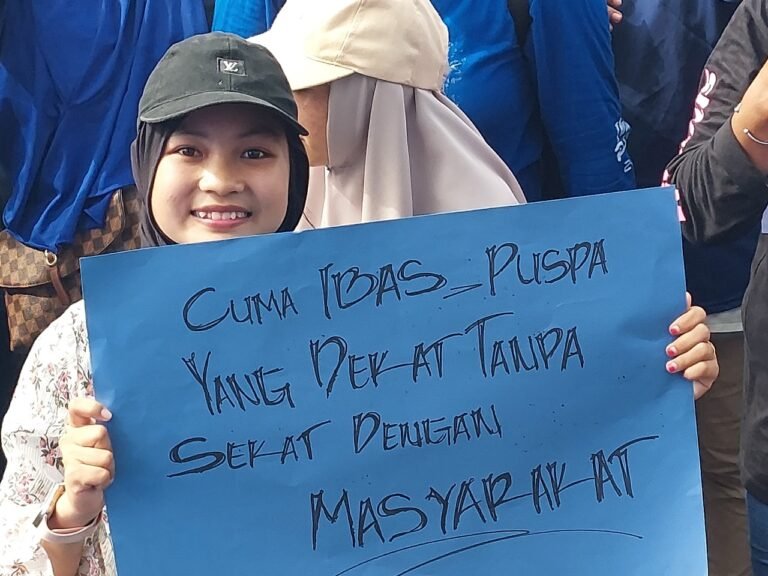 CUMA IBAS_PUSPA
YANG DEKAT TANPA
SEKAT DENGAN
MASYARAKAT